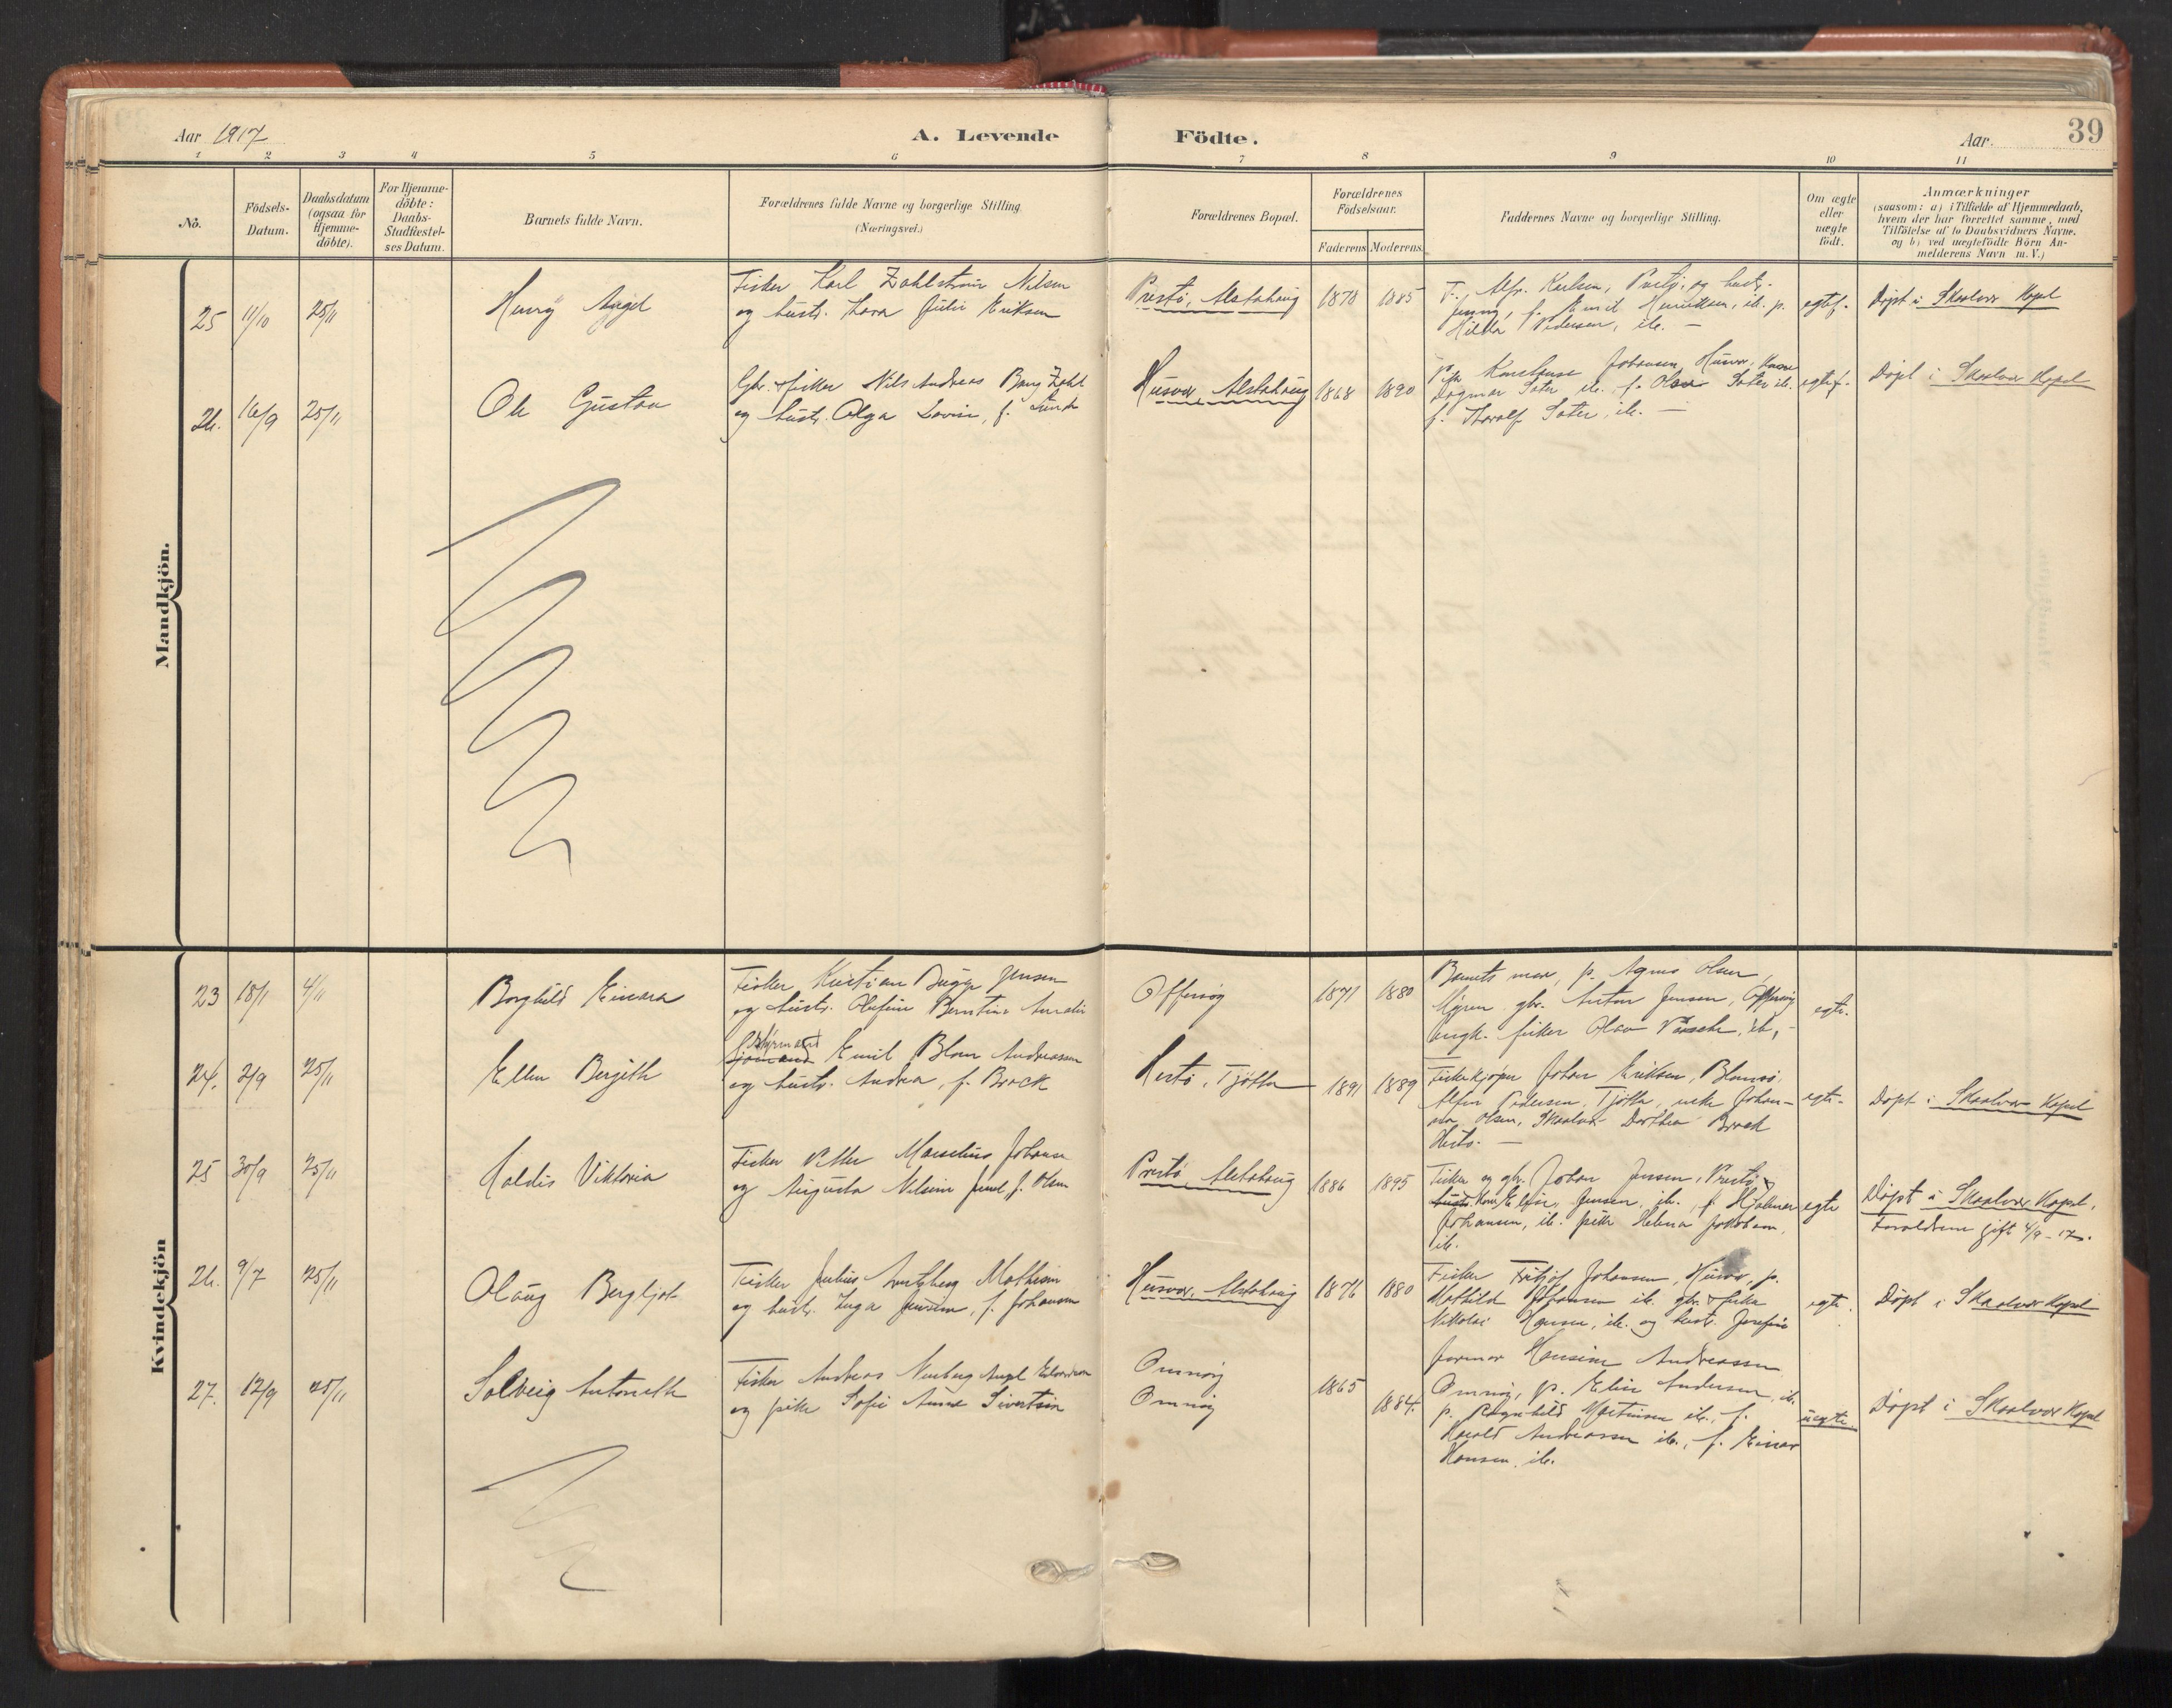 Aar 1917
A. Levende Födte.
Aar.
39
1 2 3 4 5 6 7 8 9 10 11
No.
Födsels-
Datum.
Daabsdatum
(ogsaa for
Hjemme-
döbte).
For Hjemme-
döbte:
Daabs-
Stadfæstel-
ses Datum.
Barnets fulde Navn.
Forældrenes fulde Navne og borgerlige Stilling.
(Næringsvei.)
Forældrenes Bopæl.
Forældrenes
Födselsaar.
Faderens
Moderens
Faddernes Navne og borgerlige Stilling.
Om ægte
eller
uægte
födt.
Anmærkninger
(saasom: a) i Tilfælde af Hjemmedaab,
hvem der har forrettet samme, med
Tilföielse af to Daabsvidners Navne.
og b) ved uægtefödte Börn An-
melderens Navn m. V.)
Mandkjön.
25
11/10
25/11
Henry
Fisker Karl Zahlstrøm Nilsen
og hustr. Lara Julie Eriksen
Prestø, Alstahaug
1878
1885
F. Alfr. Karlsen, Prestø, og hustr.
Jenny, f. Emil Henriksen, ib. p.
Hilda Pedersen, ib. —
egtef.
Døpt i Skaalvær Kapel
26.
16/9
25/11
Ole Gustav
Gbr. & fisker Nils Andreas Bang Zahl
og hustr. Olga Lovise, f. Sund
Husvær, Alstahaug
1868
1890
Johansen, Husvær,
Dagmar Sater ib. f. Olav Sater ib.
f. Thoralf Sater, ib. —
egtef.
Døpt i Skaalvær Kapel
Kvindekjön
23
18/1
4/11
Borghild Einara
Fisker Kristian Bugge Jensen
og hustr. Olufine Berntine
Offersøy
1871
1880
Barnets mor, p. Agnes Olsen,
Myren gbr. Anton Jensen, Offersøy
ungk. fisker Olav ib, -
egte.
24.
2/9
25/11
Ellen Bergith
Styrmand
sjømand Emil Blom Andreassen
og hustr. Andrea, f. Brock
Hestø, Tjøtta
1891
1889
Fiskekjøper Johan Eriksen, Blomsø,
Alfon Pedersen, Tjøtta, enke Johan-
na Olsen, Skaalvær Dorthea Brock
Hestø. —
egte.
Døpt i Skaalvær Kapel
25
30/9
25/11
Haldis Viktoria
Fisker Petter Marselius Johansen
og Augusta Nilsine f. Olsen
Prestø Alstahaug
1886
1895
Fisker og gbr. Johan Jensen, Prestø &
hustr. Jensen, ib., f. Hjalmar
Johansen, ib. pike Helena Jakobsen,
ib.
egte
Døpt i Skaalvær Kapel.
Forældrene gift 4/9-17.
26.
9/7
25/11
Olaug Bergljot
Fisker Julius Mathisen
og hustr. Inga Jensine, f. Johansen
Husvær, Alstahaug
1876
1880
Fisker Fritjof Johansen, Husvær, p.
Mathilde Johansen ib. gbr. & fisker
Nikolai Hansen, ib. og hustr. Josefine
egte.
Døpt i Skaalvær Kapel
27.
12/9
25/11
Solveig Antonette
Fisker Andreas Edvardsen
og pike Sofie Anna Sivertsen
Omnøy
Omnøy
1865
1884.
Hansine Andreassen
Omnøy, p. Elise Andersen, ib.
p. Ragnhild Martinsen ib., f.
Harald Andreassen ib., f. Einar
Hansen, ib.
uegte
Døpt i Skaalvær Kapel